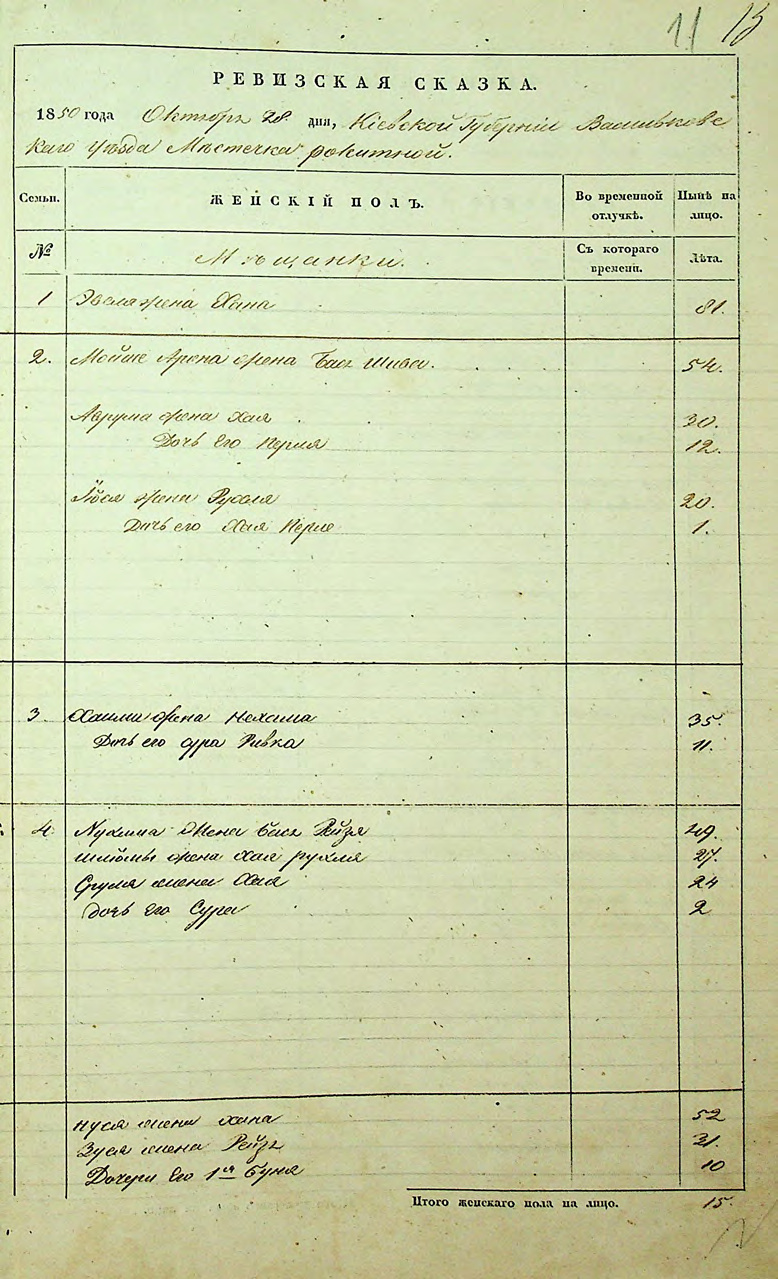 11 13
РЕВИЗСКАЯ СКАЗКА.
1850 года Октября 28 дня, Кіевской Губерніи Васильковс
каго уѣзда Мѣстечка рокитной.
Семьи. ЖЕНСКІЙ ПОЛЪ. Во временной отлучкѣ. Нынѣ на лицо.
№ Мѣщанки. Съ котораго времени. Лѣта.
1 жена Хана 81.
2. Мойше Арона жена Бася Шива. 54.
Аврума жена Хая 30.
Дочь Его Перля 12.
жена Рухля 20.
Дочь его Хая Перле 1.
3. Хаима жена Нехама 35.
Дочь его сура Ривка 11.
4. Нухима жена Бася Рейзя 49.
шлиомы жена хая рухля 27.
Срумя жена Хая 24
дочь Его Сура 2
нуся жена хана 52
Зуся жена Рейзъ 31.
Дочери Его 1я Буня 10
Итого женскаго пола на лицо. 15.